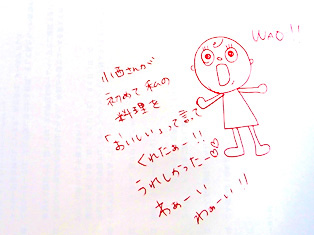 小西さんが
初めて私の
料理を
「おいしい」って言って
くれたぁー!!
うれしかったー♡♡
わぁーい
わぁーい!!
WAO!!